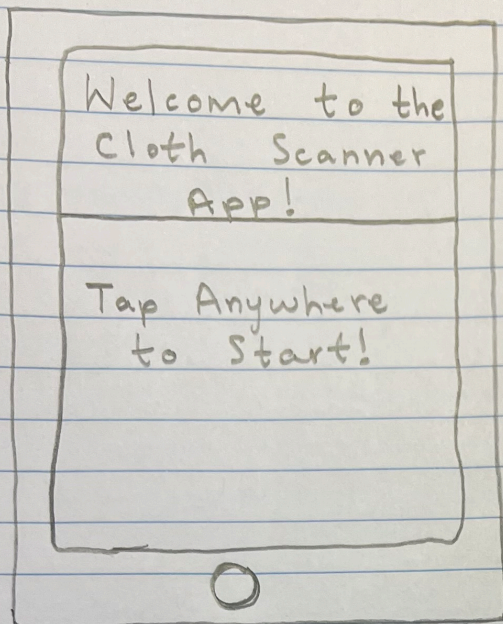 Welcome to the
Cloth Scanner
App!
Tap Anywhere
to Start!